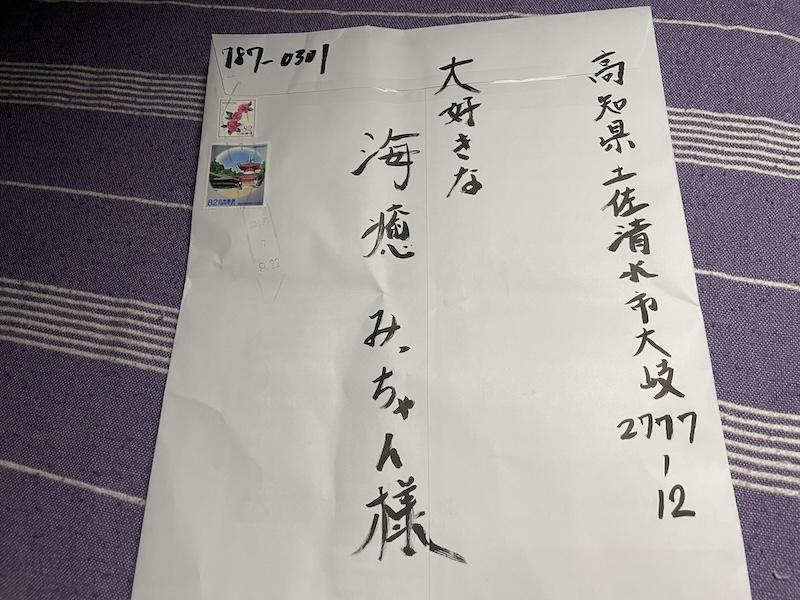 787-0301
高知県土佐清水市大岐2777-12
大好きな
海癒 みっちゃん様
52
82 日本郵便